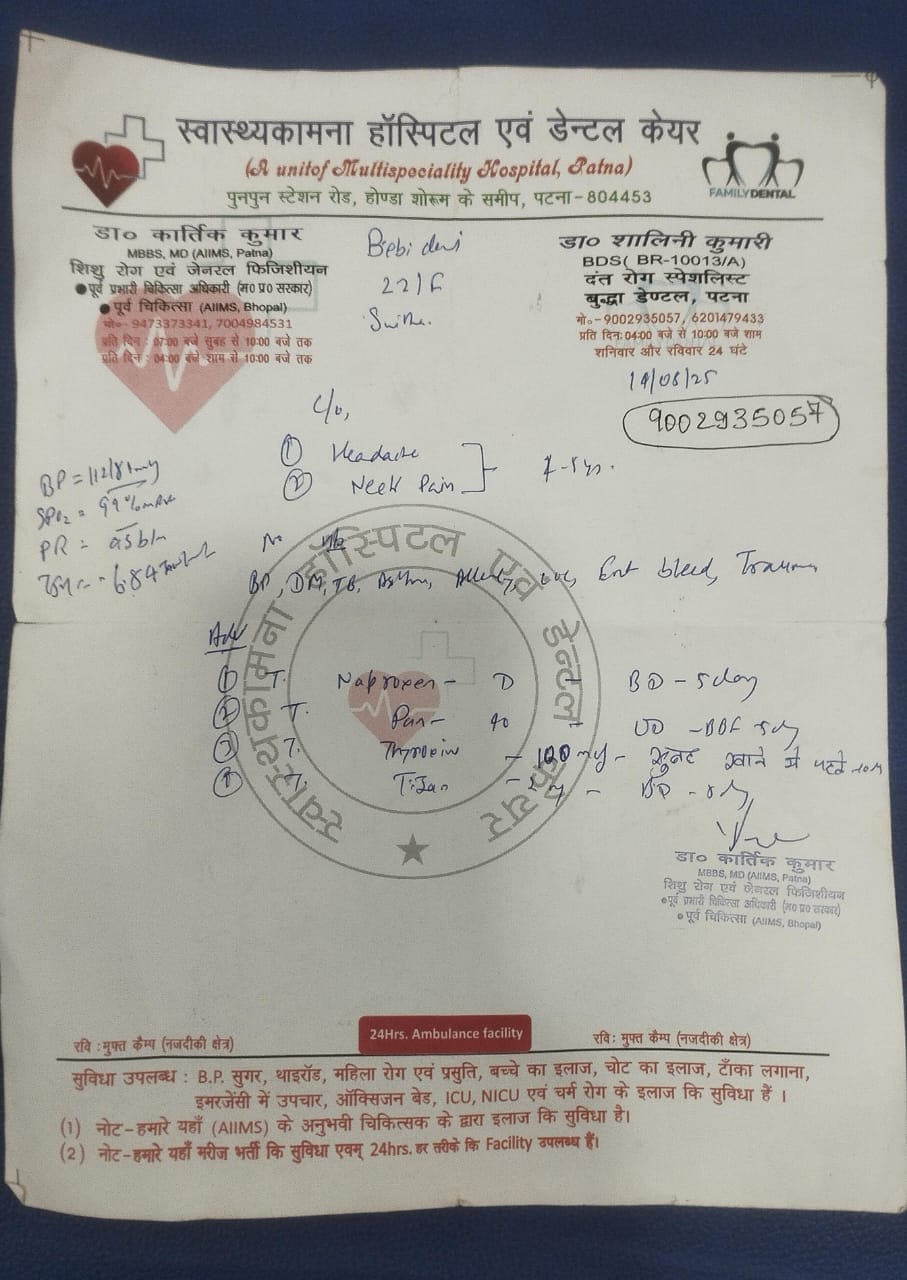 स्वास्थ्यकामना हॉस्पिटल एवं डेन्टल केयर
(A unitof Multispeciality Hospital, Patna)
पुनपुन स्टेशन रोड, होण्डा शोरूम के समीप, पटना-804453
FAMILY DENTAL
डा० कार्तिक कुमार
MBBS, MD (AIIMS, Patna)
शिशु रोग एवं जेनरल फिजिशीयन
●पूर्व प्रभारी चिकित्सा अधिकारी (म० प्र० सरकार)
●पूर्व चिकित्सा (AIIMS, Bhopal)
मो०- 9473373341, 7004984531
प्रति दिन : 07:00 बजे सुबह से 10:00 बजे तक
प्रति दिन : 04:00 बजे शाम से 10:00 बजे तक
Bebi devi
22/F
डा० शालिनी कुमारी
BDS( BR-10013/A)
दंत रोग स्पेशलिस्ट
बुद्धा डेण्टल, पटना
मो०-9002935057, 6201479433
प्रति दिन: 04:00 बजे से 10:00 बजे शाम
शनिवार और रविवार 24 घंटे
/08/25
9002935057
C/o,
① Headache
② Neck Pain
BP = 112/81
SPO₂ = 99%
PR =
BP, DM, TB, Asthma, Allergy, bleed, Trauma
Adv
① T. Naproxen - D - BD - 5 day
② T. Pan - 40 - OD - BBF
③ T. Thyroxin - 100 - सुबह खाने से पहले
④ T. - BD
स्वास्थ्यकामना हॉस्पिटल एवं डेन्टल केयर
डा० कार्तिक कुमार
MBBS, MD (AIIMS, Patna)
शिशु रोग एवं जेनरल फिजिशीयन
●पूर्व प्रभारी चिकित्सा अधिकारी (म० प्र० सरकार)
●पूर्व चिकित्सा (AIIMS, Bhopal)
रवि : मुफ्त कैम्प (नजदीकी क्षेत्र)
24Hrs. Ambulance facility
रवि: मुफ्त कैम्प (नजदीकी क्षेत्र)
सुविधा उपलब्ध : B.P. सुगर, थाइरॉड, महिला रोग एवं प्रसुति, बच्चे का इलाज, चोट का इलाज, टाँका लगाना,
इमरजेंसी में उपचार, ऑक्सिजन बेड, ICU, NICU एवं चर्म रोग के इलाज कि सुविधा हैं ।
(1) नोट-हमारे यहाँ (AIIMS) के अनुभवी चिकित्सक के द्वारा इलाज कि सुविधा है।
(2) नोट-हमारे यहाँ मरीज भर्ती कि सुविधा एवम् 24hrs. हर तरीके कि Facility उपलब्ध हैं।